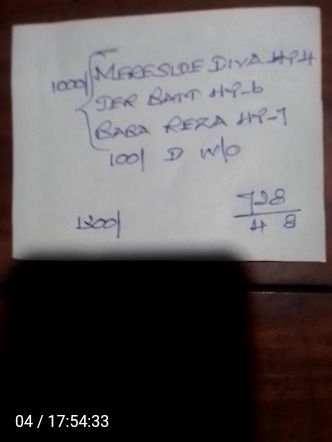 1000/ MERESIDE DIVA HP-4
JER BATT HP-6
BABA REZA HP-7
100/ D W/O
728
1200/ 4 8
04 / 17:54:33